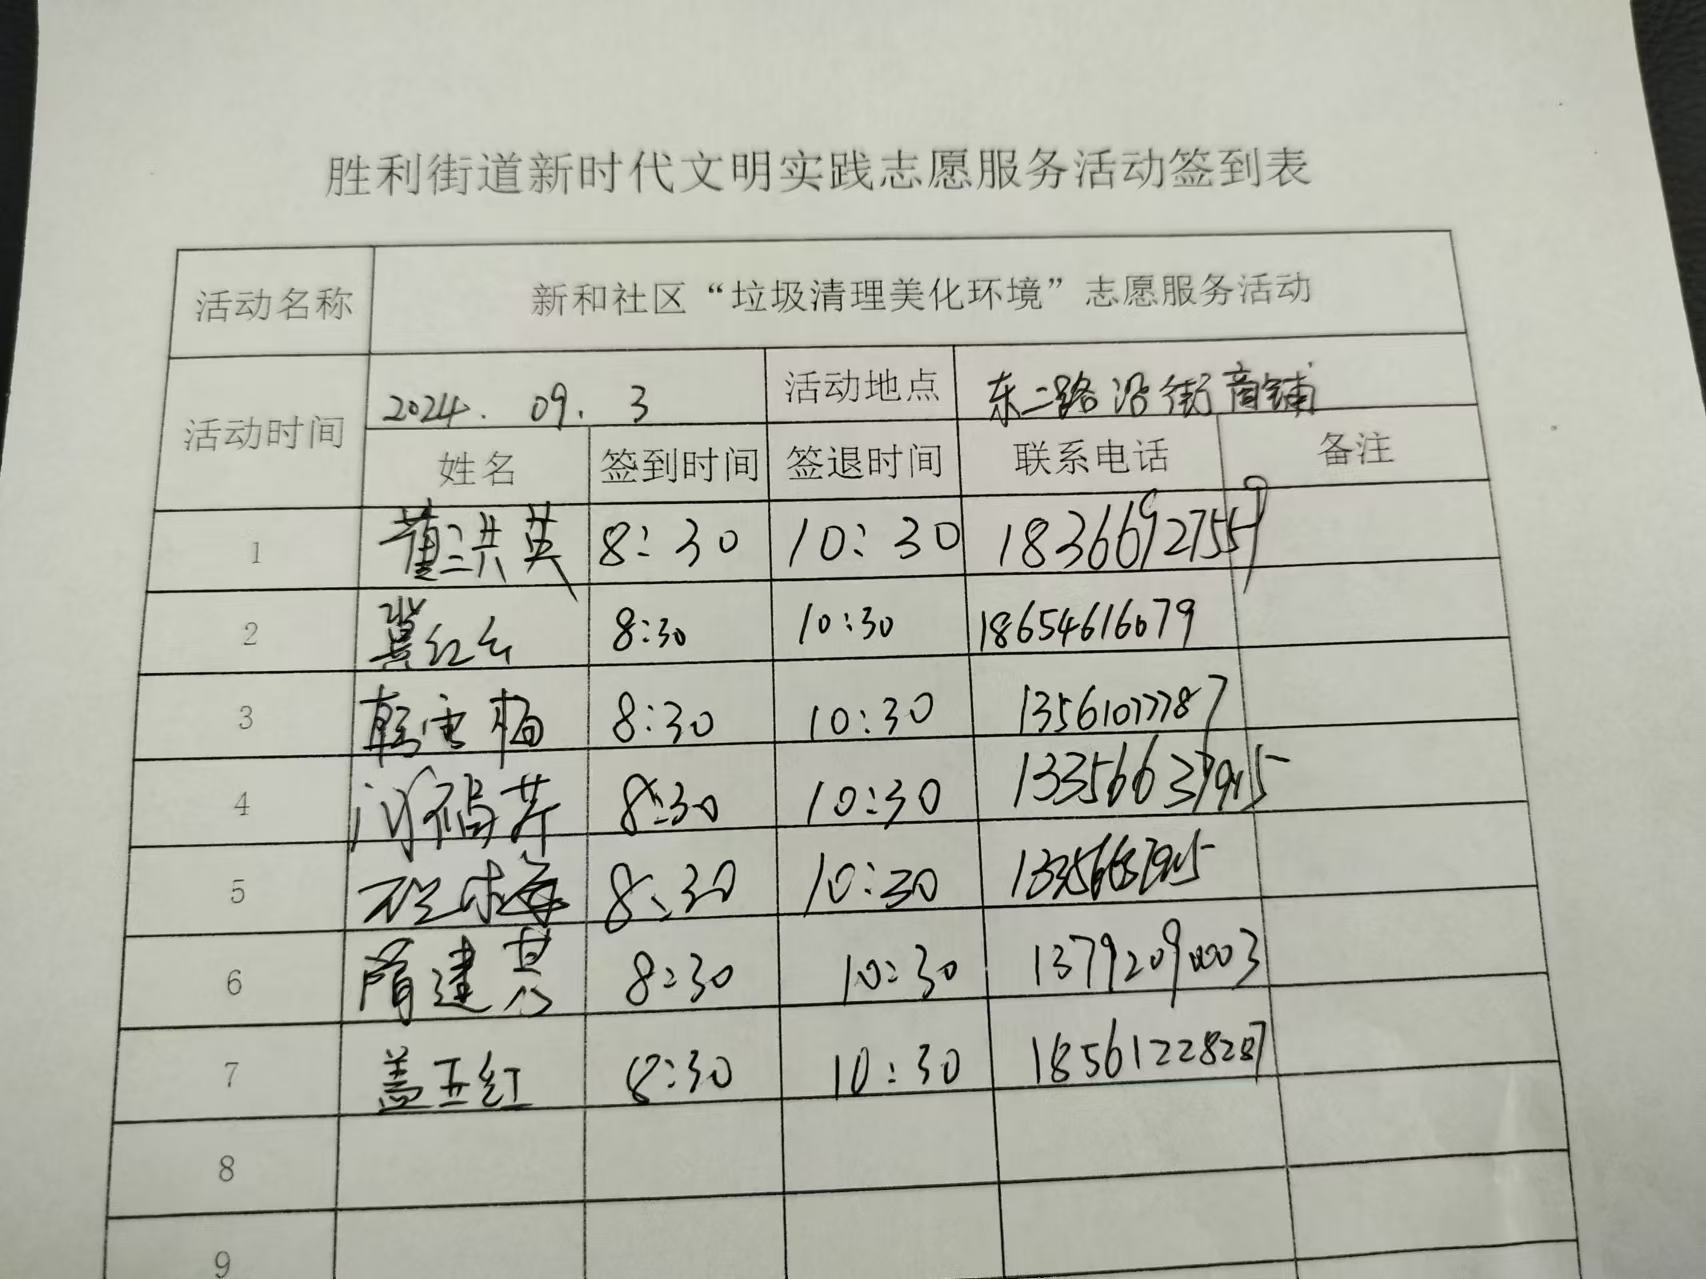 胜利街道新时代文明实践志愿服务活动签到表
活动名称 新和社区“垃圾清理美化环境”志愿服务活动
活动时间 2024. 09. 3 活动地点 东二路沿街商铺
姓名 签到时间 签退时间 联系电话 备注
1 董洪英 8:30 10:30 18366927559
2 冀红云 8:30 10:30 18654616079
3 韩雪梅 8:30 10:30 13561077787
4 8:30 10:30 13356637915
5 8:30 10:30
6 隋建 8:30 10:30 13792090003
7 盖玉红 8:30 10:30 18561228287
8
9